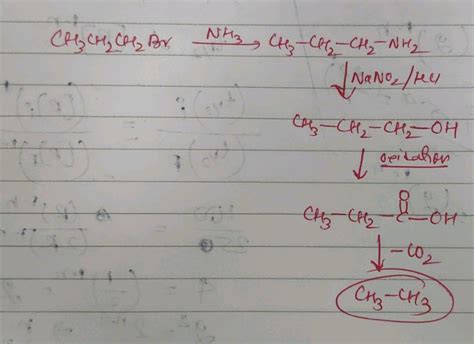 CH3CH2CH2Br NH3 → CH3-CH2-CH2-NH2
↓ NaNO2/HCl
CH3-CH2-CH2-OH
↓ oxidation
O
CH3-CH2-C-OH
↓ -CO2
CH3-CH3